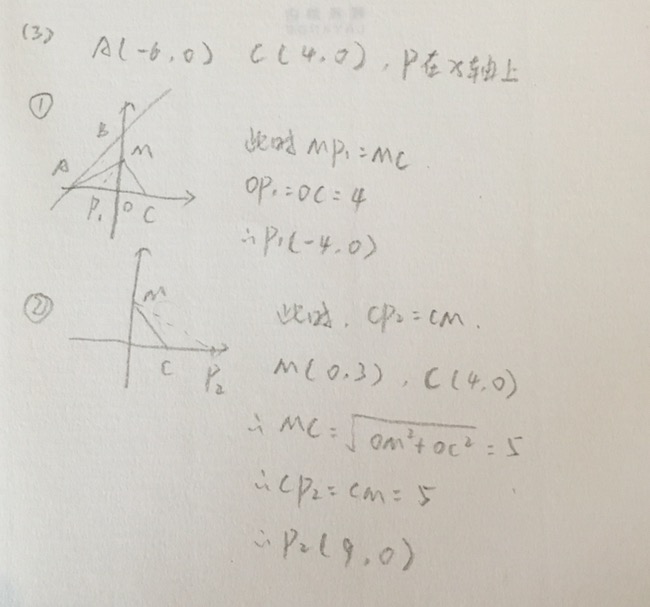 (3) A(-6,0) C(4,0), P在x轴上
①
B
M
A
P₁ O C
此时 MP₁=MC.
OP₁=OC=4
∴P₁(-4,0)
②
M
C P₂
此时, CP₂=CM.
M(0,3), C(4,0)
∴ MC=√(OM²+OC²)=5
∴CP₂=CM=5
∴P₂(9,0)